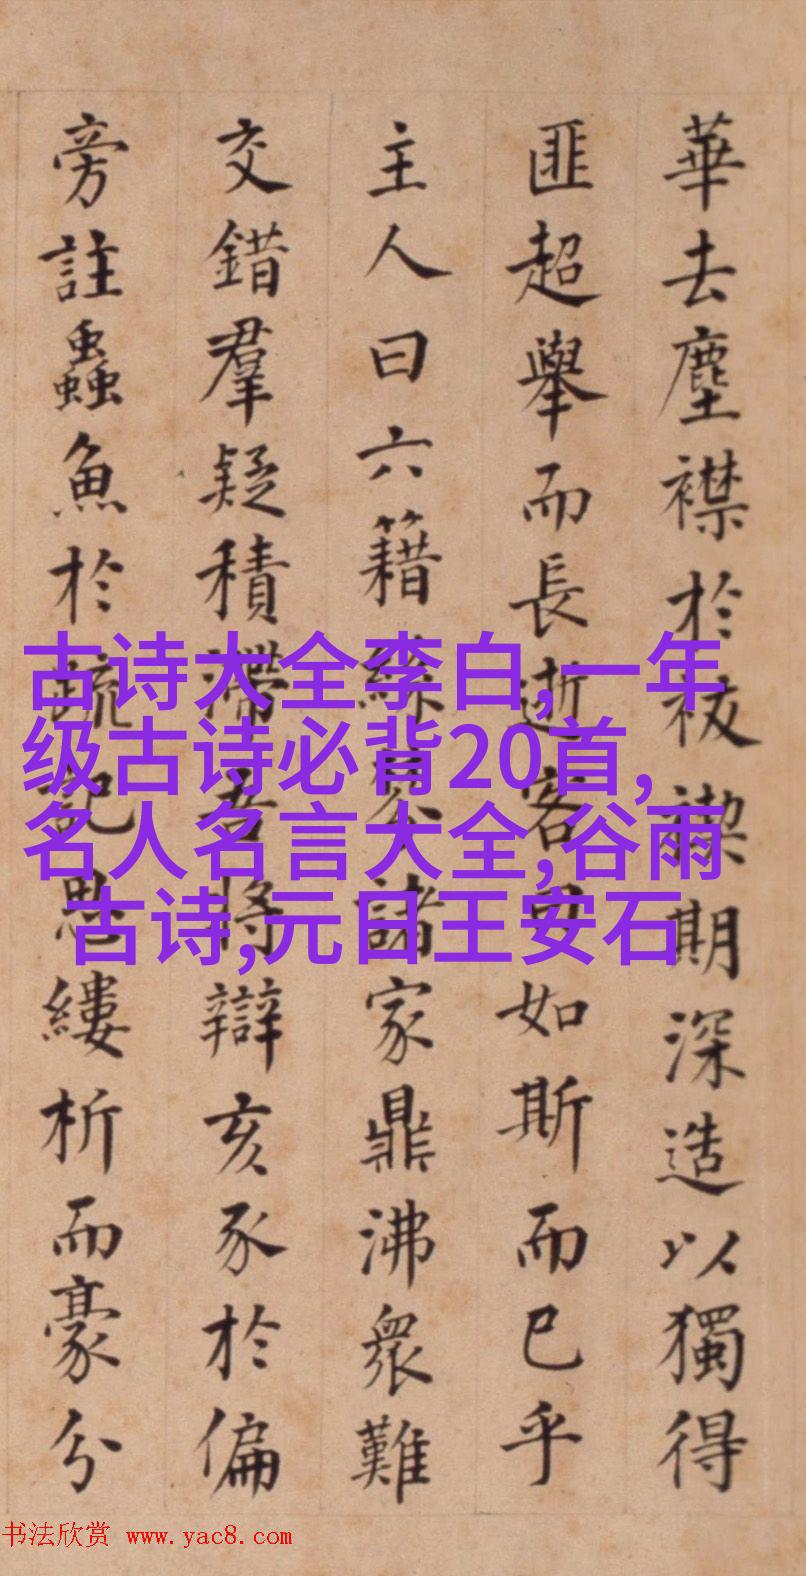 華去塵襟於袚禊期深造以獨得
匪超舉而長逝客曰如斯而已乎
主人曰六籍諸家鼎沸衆難
交錯羣疑積滯吾將辯亥豕於偏
旁註蟲魚於疏記縷析而豪分
古诗大全李白,一年
级古诗必背20首,
名人名言大全,谷雨
古诗,元日王安石
书法欣赏 www.yac8.com